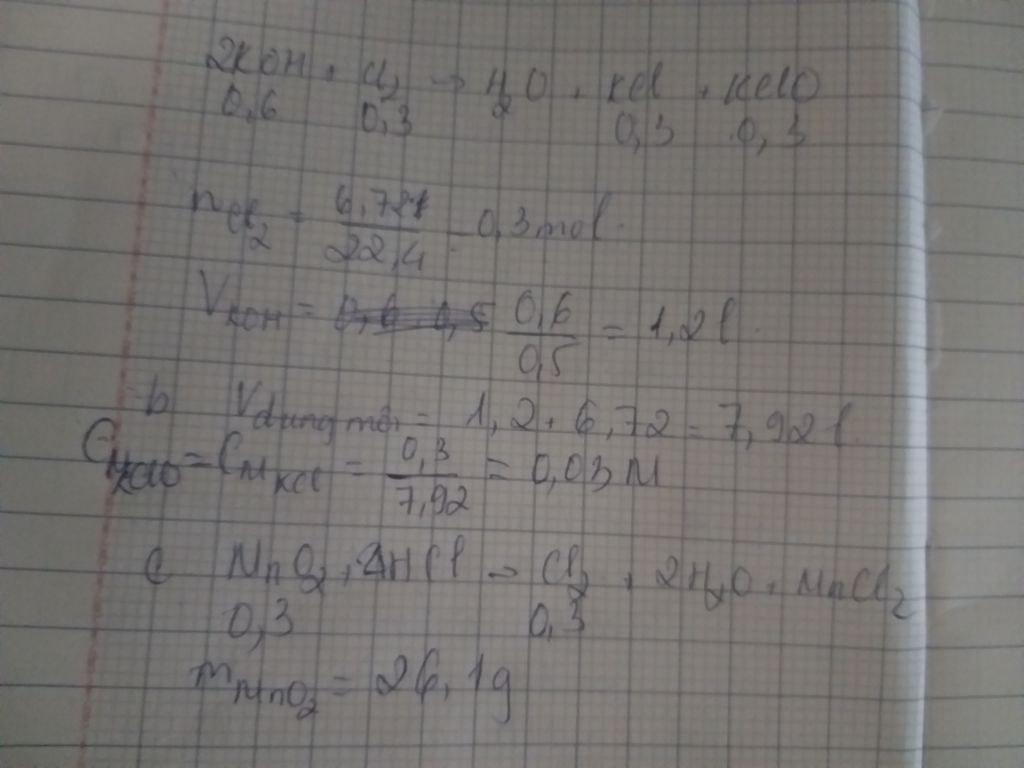 2KOH + Cl2 → H2O + KCl + KClO
0,6 0,3 0,3 0,3
nCl2 = 6,72l / 22,4 = 0,3 mol.
VKOH = 0,6 / 0,5 = 1,2l.
b Vdung môi = 1,2 + 6,72 = 7,92l.
CMKClO = CMKCl = 0,3 / 7,92 = 0,03M
c MnO2 + 4HCl → Cl2 + 2H2O + MnCl2
0,3 0,3
mMnO2 = 26,1g